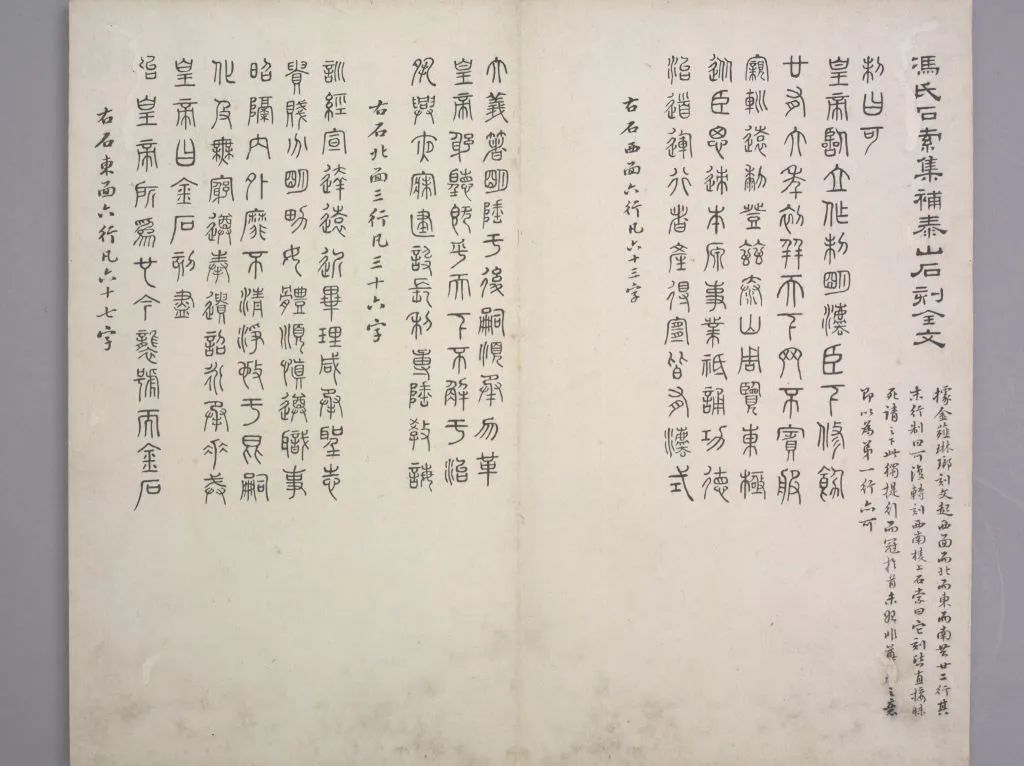 馮氏石索集補泰山石刻全文
據金薤琳瑯刻文起西面而北而東而南共廿二行其
末行制曰可復轉刻西南棱上石索曰它刻皆直接昧
死請之下此獨提行而冠於首未知非舊之意
即以為第一行亦可
制曰可
皇帝臨立作制明灋臣下修飭
廿有六年初并天下罔不賓服
寴𨊠遠黎登茲泰山周覽東極
從臣思迹本原事業祗誦功德
治道運行者產得宜皆有灋式
右石西面六行凡六十三字
大義箸明陲于後嗣順承勿革
皇帝躬聽既平天下不解于治
夙興夜寐建設長利專隆教誨
右石北面三行凡三十六字
訓經宣達遠近畢理咸承聖志
貴賤分明男女體順慎遵職事
昭隔內外靡不清淨施于昆嗣
化及無窮遵奉遺詔永承重戒
皇帝曰金石刻盡
始皇帝所為也今襲號而金石
右石東面六行凡六十七字